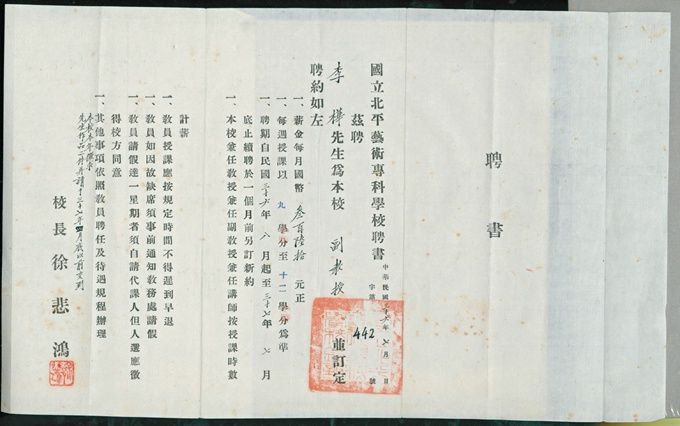 聘書
國立北平藝術專科學校聘書
中華民國三十六年七月 日
字第 442 號
茲聘
李樺先生為本校 副教授 並訂定
聘約如左
一、薪金每月國幣 叁百陸拾 元正
一、每週授課以 九 學分至 十二 學分為準
一、聘期自民國三十六年八月起至三十七年七月
底止續聘於一個月前另訂新約
一、本校兼任教授兼任副教授兼任講師按授課時數
計薪
一、教員授課應按規定時間不得遲到早退
一、教員如因故缺席須事前通知教務處請假
一、教員請假達一星期者須自請代課人但人選應徵
得校方同意
一、其他事項依照教員聘任及待遇規程辦理
本校本年徵求
先生作品二件并請于三十七年四月底以前交到
校長徐悲鴻